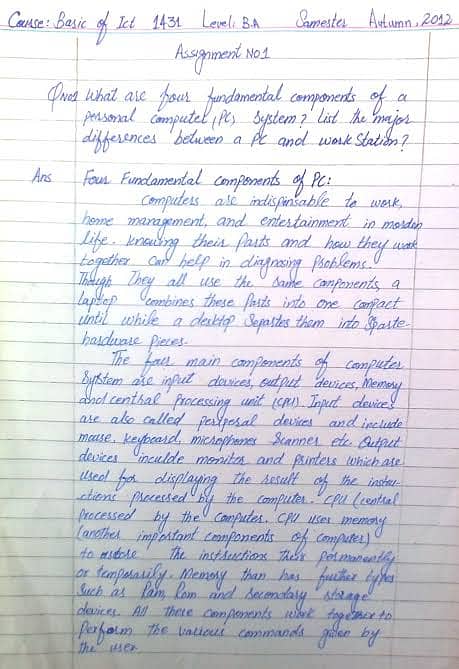 Course: Basic of Ict 1431 Level: B.A Samester Autumn, 2012
Assignment NO1
QNO1 What are four fundamental components of a
personal computer (PC) System? List the major
differences between a PC and work Station?
Ans Four Fundamental components of PC:
Computers are indispinsable to work,
home management, and entertainment in mordan
life. Knowing their Parts and how they work
together can help in diagnosing Problems.
Though They all use the same components, a
laptop combines these Parts into one compact
until while a desktop Separtes them into Sparte-
hardware Pieces.
The four main components of computer
System are input devices, output devices, Memory
and central Processing unit (CPU). Input devices
are also called perperal devices and include
mouse, keyboard, microphones Scanner etc. Output
devices inculde monitor and printers which are
used for displaying the result of the instru-
ctions processed by the computer. CPU (central
processed by the computer. CPU uses memory
(another important components of computer)
to The instructions permanently
or temporarily. Memory than has further types
Such as Ram, Rom and Secondary storage
devices. All these components work together to
Perform the various commands given by
the user.